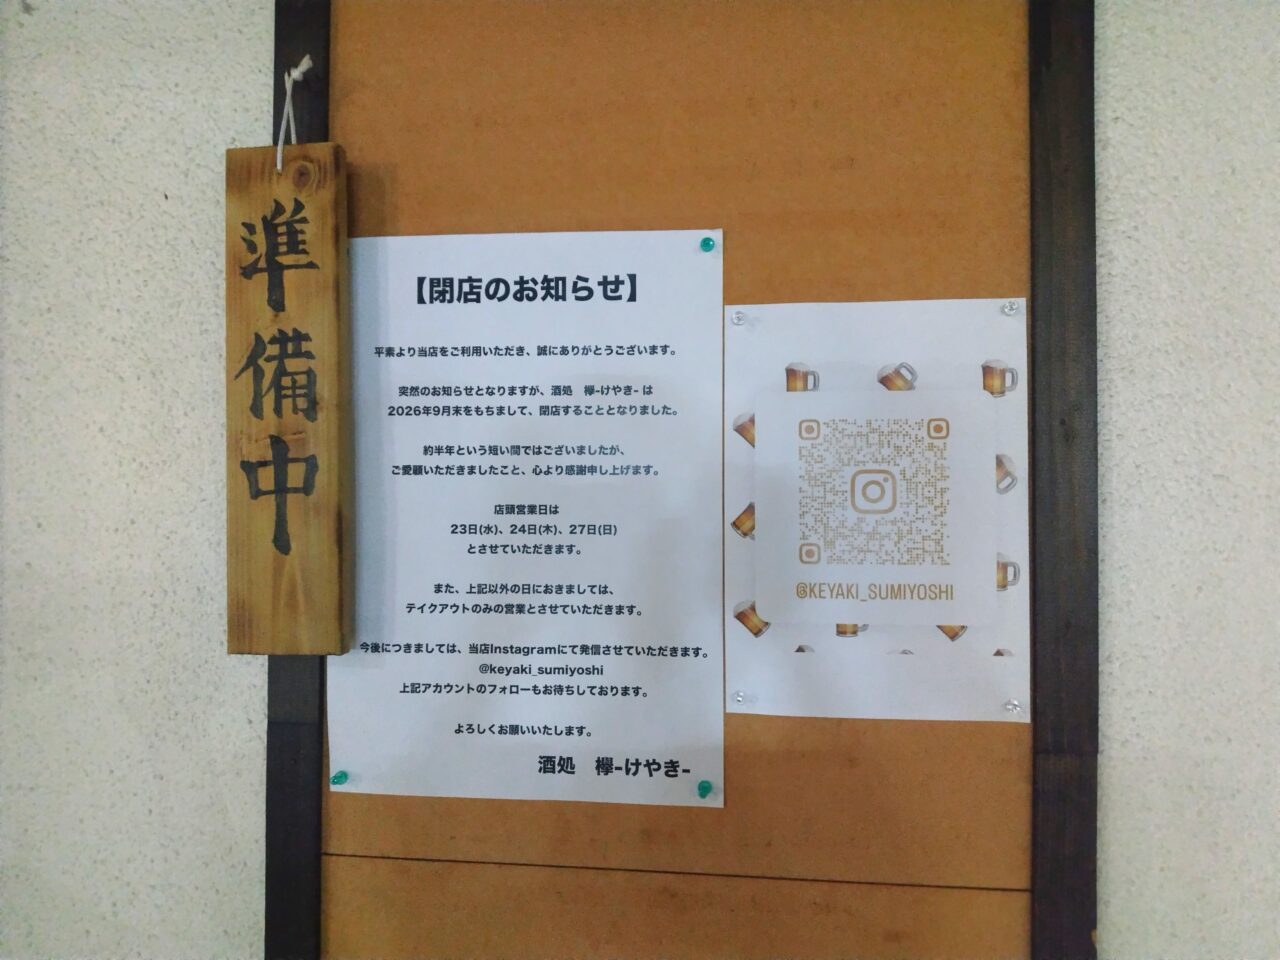 準備中
【閉店のお知らせ】
平素より当店をご利用いただき、誠にありがとうございます。
突然のお知らせとなりますが、酒処　欅-けやき- は
2026年9月末をもちまして、閉店することとなりました。
約半年という短い間ではございましたが、
ご愛顧いただきましたこと、心より感謝申し上げます。
店頭営業日は
23日(水)、24日(木)、27日(日)
とさせていただきます。
また、上記以外の日におきましては、
テイクアウトのみの営業とさせていただきます。
今後につきましては、当店Instagramにて発信させていただきます。
@keyaki_sumiyoshi
上記アカウントのフォローもお待ちしております。
よろしくお願いいたします。
酒処　欅-けやき-
@KEYAKI_SUMIYOSHI